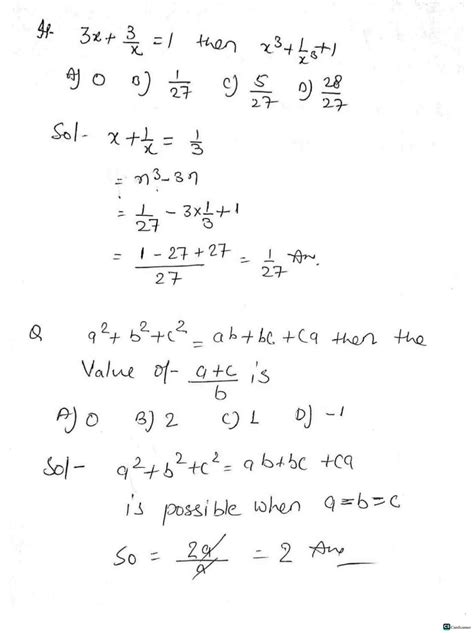 If- 3x + 3/x = 1 then x³ + 1/x³ + 1
A) 0 B) 1/27 C) 5/27 D) 28/27
Sol- x + 1/x = 1/3
= n³ - 3n
= 1/27 - 3 × 1/3 + 1
= (1 - 27 + 27)/27 = 1/27 Ans.
Q a² + b² + c² = ab + bc + ca then the
Value of- (a+c)/b is
A) 0 B) 2 C) 1 D) -1
Sol- a² + b² + c² = ab + bc + ca
is possible when a = b = c
So = 2a/a = 2 Ans
CS CamScanner